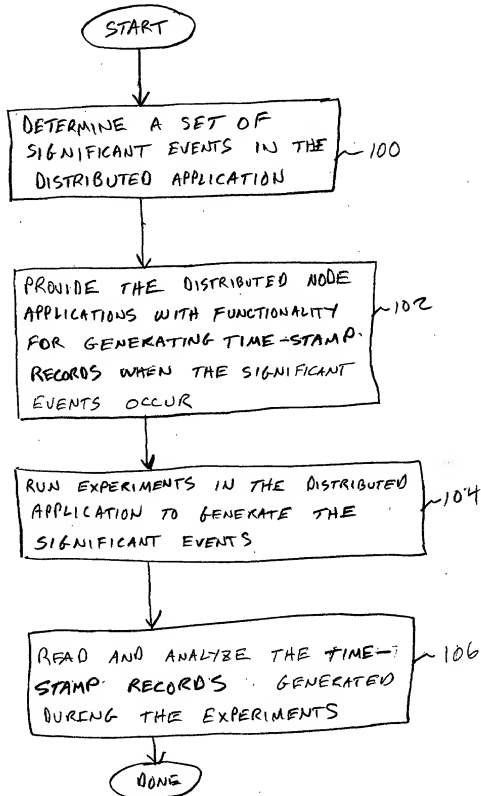 START
DETERMINE A SET OF
SIGNIFICANT EVENTS IN THE
DISTRIBUTED APPLICATION
100
PROVIDE THE DISTRIBUTED NODE
APPLICATIONS WITH FUNCTIONALITY
FOR GENERATING TIME-STAMP
RECORDS WHEN THE SIGNIFICANT
EVENTS OCCUR
102
RUN EXPERIMENTS IN THE DISTRIBUTED
APPLICATION TO GENERATE THE
SIGNIFICANT EVENTS
104
READ AND ANALYZE THE TIME-
STAMP RECORDS GENERATED
DURING THE EXPERIMENTS
106
DONE